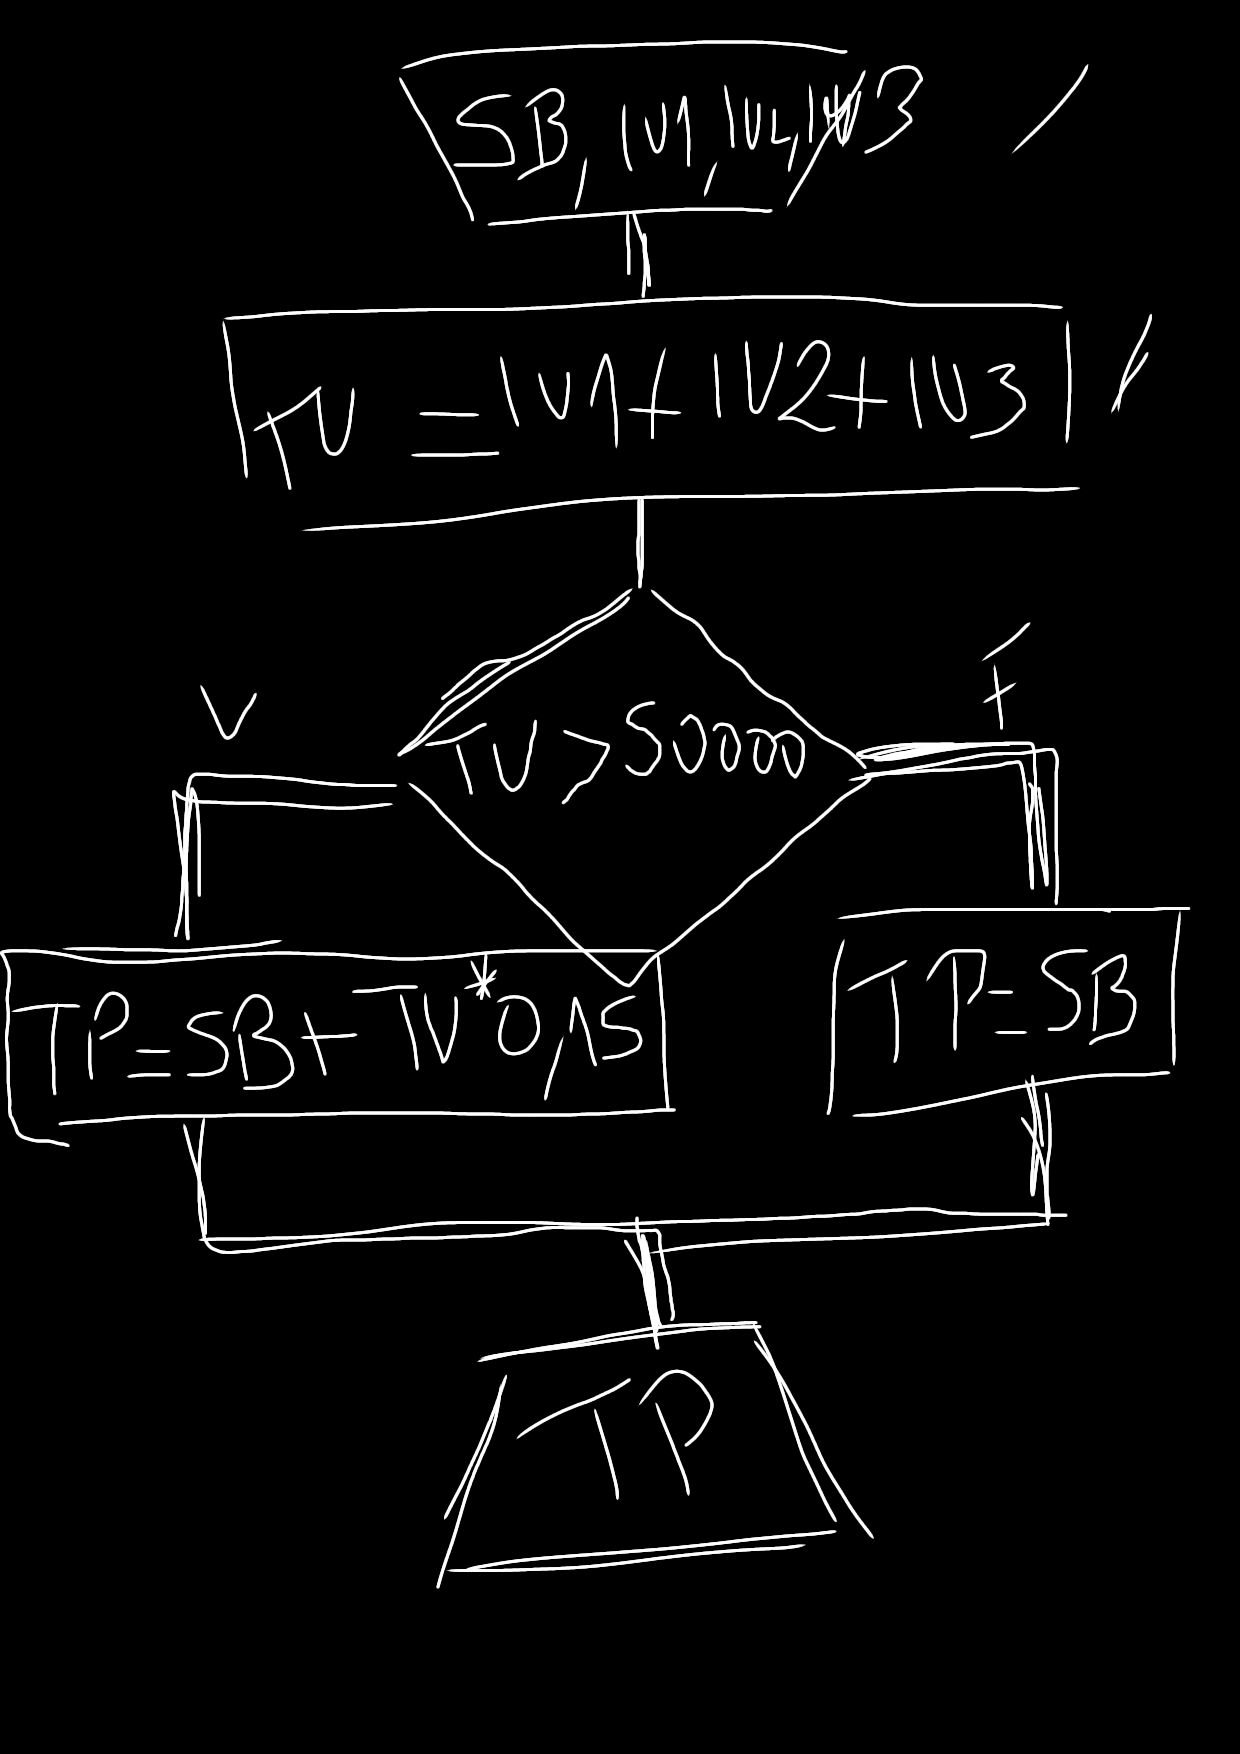 SB, IV1, IV2, IV3
TV = IV1 + IV2 + IV3
TV > 50000
V
F
TP = SB + TV * 0,15
TP = SB
TP